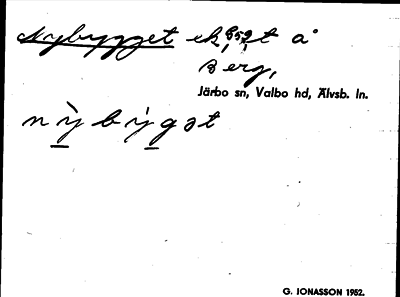 Nybygget ek. 859 t å
Berg,
Järbo sn, Valbo hd, Älvsb. ln.
nỳbýgət
G. JONASSON 1952.